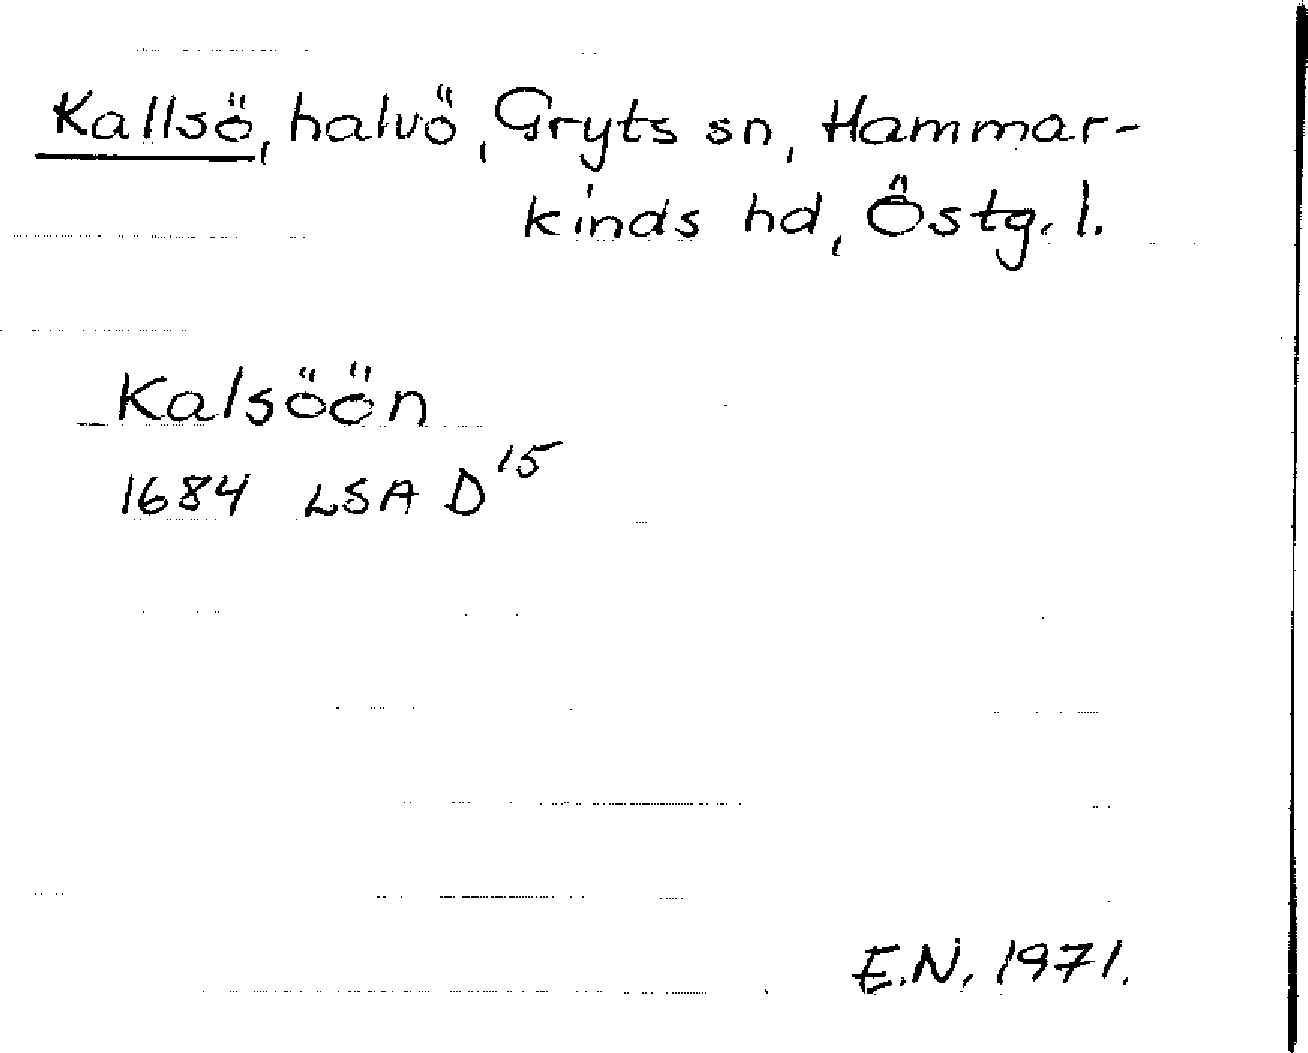 Kallsö, halvö, Gryts sn, Hammar-
kinds hd, Östg. l.
Kalsöön
1684 LSA D¹⁵
E.N. 1971.